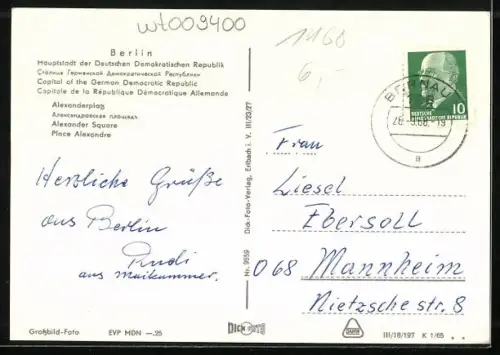 wt009400
1160
6,-
Berlin
Hauptstadt der Deutschen Demokratischen Republik
Столица Германской Демократической Республики
Capital of the German Democratic Republic
Capitale de la République Démocratique Allemande
Alexanderplatz
Александровская площадь
Alexander Square
Place Alexandre
Herzliche Grüße
aus Berlin
Rudi
aus Maikammer.
Großbild-Foto EVP MDN —.25
Nr. 9559 Dick-Foto-Verlag, Erlbach i. V. III/23/27
DICK FOTO
BERNAU
19
a
10
DEUTSCHE
DEMOKRATISCHE REPUBLIK
Frau
Liesel
Ebersoll
068 Mannheim
Nietzsche str. 8
III/18/197 K 1/65